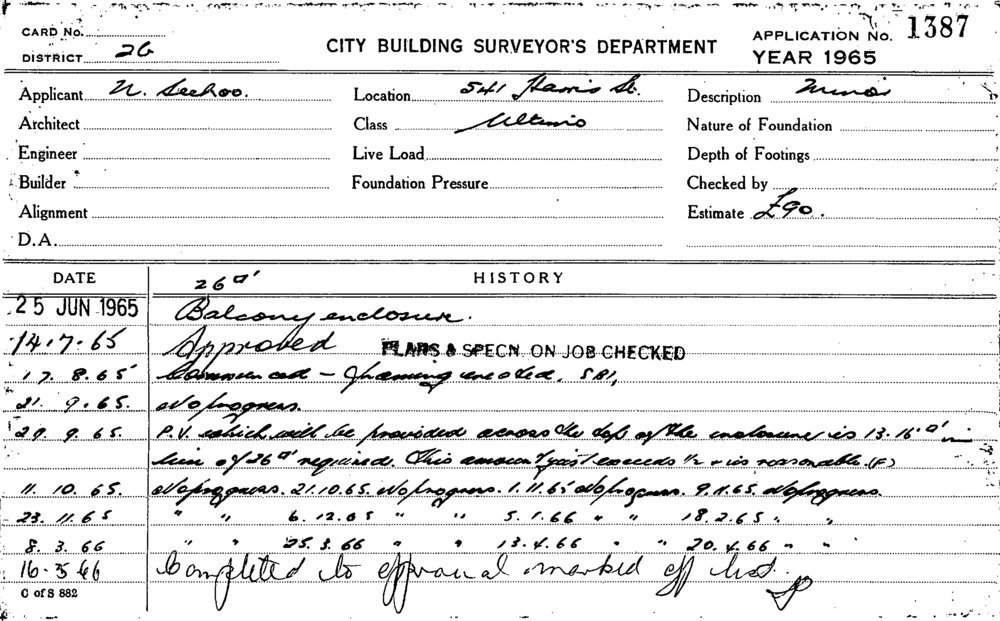 CARD No.
DISTRICT 26
CITY BUILDING SURVEYOR'S DEPARTMENT
APPLICATION No. 1387
YEAR 1965
Applicant N. Seehoo. Location 541 Harris St. Description Minor
Architect Class Ultimo Nature of Foundation
Engineer Live Load Depth of Footings
Builder Foundation Pressure Checked by
Alignment Estimate £90.
D.A.
DATE HISTORY
26 □'
25 JUN 1965 Balcony enclosure.
14.7.65 Approved PLANS & SPECN. ON JOB CHECKED
17. 8.65 Commenced – framing erected.
21. 9.65. No progress.
29. 9.65. P.V. which will be provided across the top of the enclosure is 13.16 □' in
lieu of 26 □' required. This amount just exceeds ½ + is reasonable. (F)
11. 10. 65. No progress. 21.10.65. No progress. 1.11.65 No progress. 9.11.65. No progress.
23. 11.65 " " 6.12.65 " " 5.1.66 " " 18.2.65 " "
8. 3. 66 " " 25.3.66 " " 13.4.66 " " 20.4.66 " "
16-5-66 Completed to approval marked off list.
C of S 882